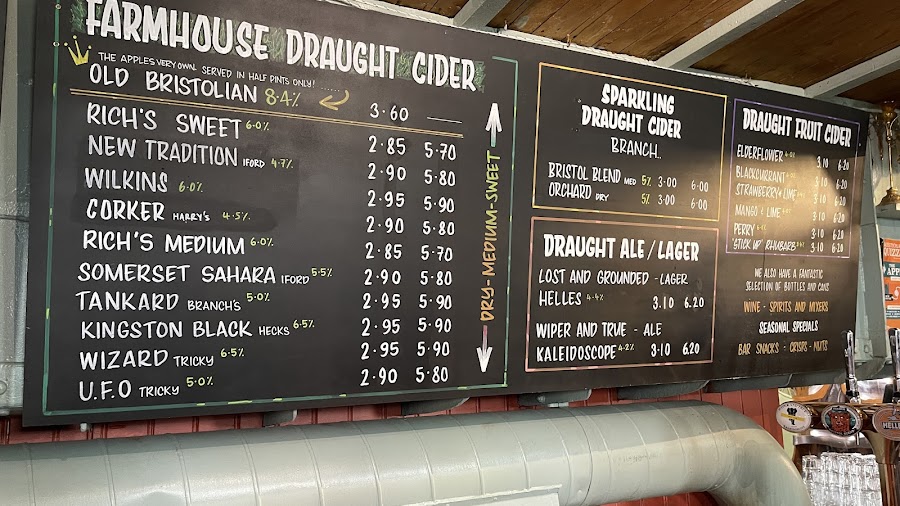 FARMHOUSE DRAUGHT CIDER
THE APPLES VERY OWN. SERVED IN HALF PINTS ONLY!
OLD BRISTOLIAN 8.4% 3.60
RICH'S SWEET 6.0% 2.85 5.70
NEW TRADITION IFORD 4.7% 2.90 5.80
WILKINS 6.0% 2.95 5.90
CORKER HARRY'S 4.5% 2.90 5.80
RICH'S MEDIUM 6.0% 2.85 5.70
SOMERSET SAHARA IFORD 5.5% 2.90 5.80
TANKARD BRANCH'S 5.0% 2.95 5.90
KINGSTON BLACK HECKS 6.5% 2.95 5.90
WIZARD TRICKY 6.5% 2.95 5.90
U.F.O TRICKY 5.0% 2.90 5.80
DRY-MEDIUM-SWEET
SPARKLING
DRAUGHT CIDER
BRANCH..
BRISTOL BLEND MED 5% 3.00 6.00
ORCHARD DRY 5% 3.00 6.00
DRAUGHT ALE / LAGER
LOST AND GROUNDED - LAGER
HELLES 4.4% 3.10 6.20
WIPER AND TRUE - ALE
KALEIDOSCOPE 4.2% 3.10 6.20
DRAUGHT FRUIT CIDER
ELDERFLOWER 3.10 6.20
BLACKCURRANT 3.10 6.20
STRAWBERRY + LIME 3.10 6.20
MANGO + LIME 3.10 6.20
PERRY 3.10 6.20
'STICK UP' RHUBARB 3.10 6.20
WE ALSO HAVE A FANTASTIC
SELECTION OF BOTTLES AND CANS
WINE - SPIRITS AND MIXERS
SEASONAL SPECIALS
BAR SNACKS - CRISPS - NUTS
HELLES